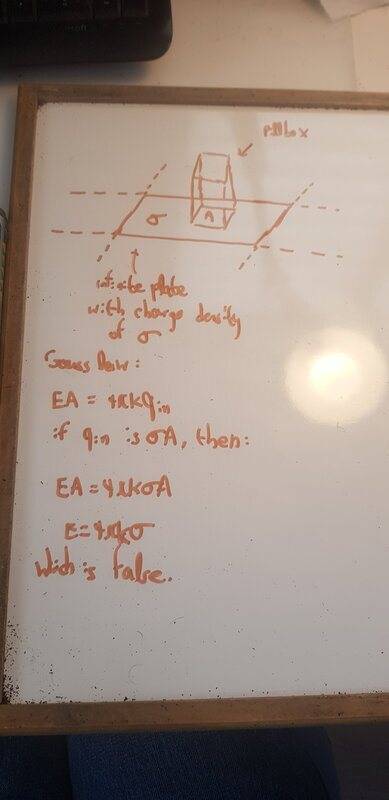 pillbox
σ
A
infinite plate
with charge density
of σ
Gauss law:
EA = 4πkq in
if q in is σA, then:
EA = 4πkσA
E = 4πkσ
Which is false.